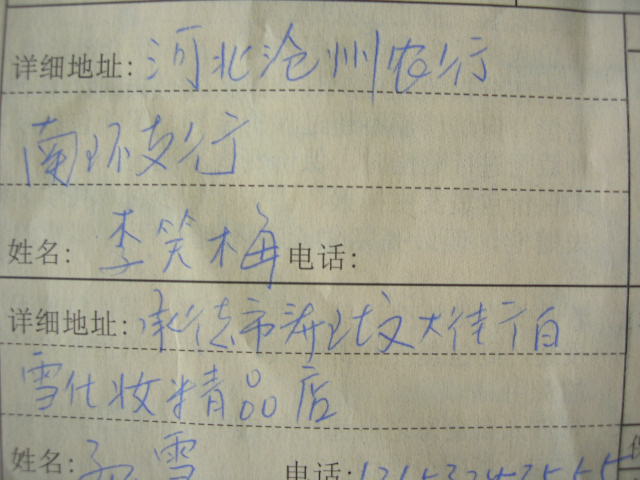 详细地址: 河北沧州农行
南环支行
姓名: 李笑梅 电话:
详细地址: 承德市 大街 白
雪化妆精品店
姓名: 孙雪 电话: